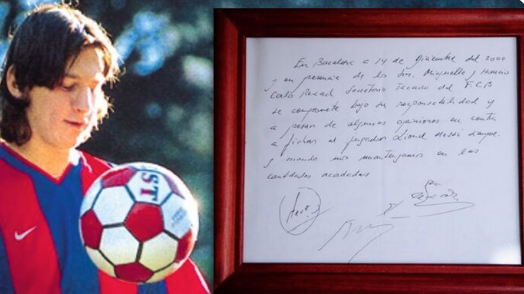 ST
En Barcelona a 14 de Diciembre del 2000
y en presencia de los Srs. Minguella y Horacio
Carlos Rexach Secretario Técnico del F.C.B
se compromete bajo su responsabilidad y
a pesar de algunas opiniones en contra
a fichar al jugador Lionel Messi
y cuando nos mantengamos en las
cantidades acordadas